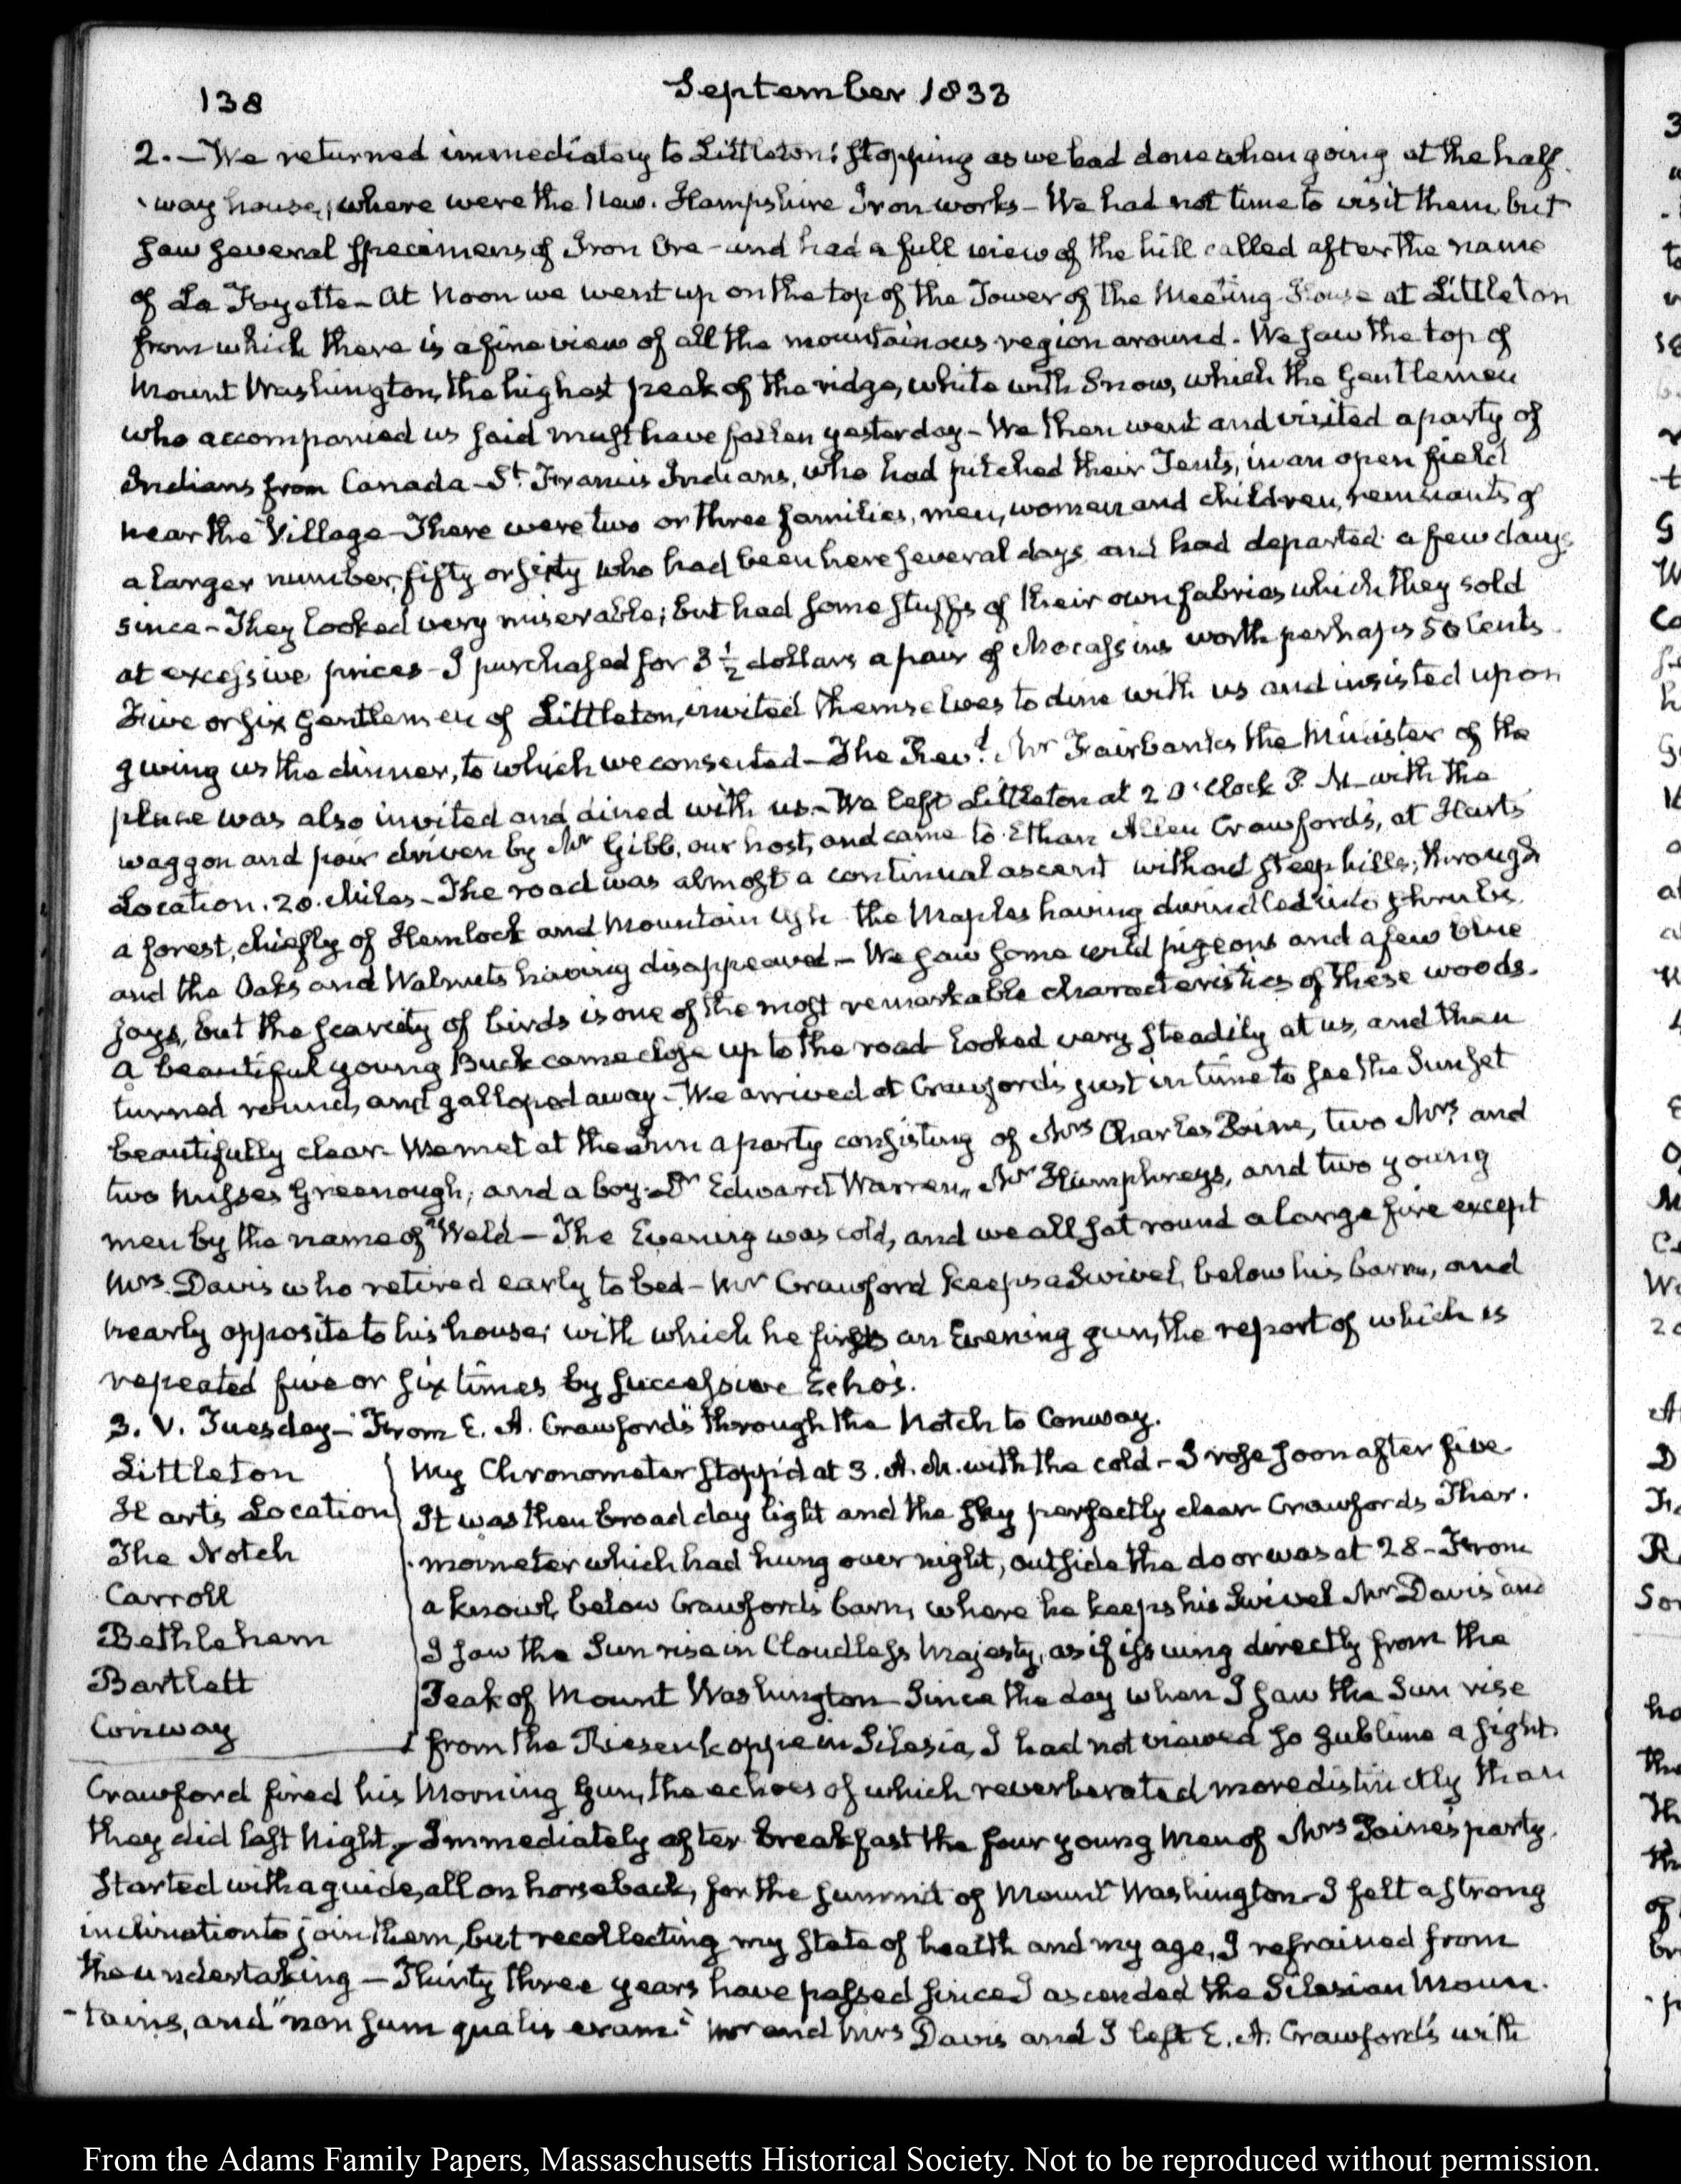 138
September 1833
2.— We returned immediately to Littleton; stopping as we had done when going at the half
way house, where were the New-Hampshire Iron works— We had not time to visit them but
saw several specimens of Iron Ore— and had a full view of the hill called after the name
of La Fayette— At Noon we went up on the top of the Tower of the Meeting House at Littleton
from which there is a fine view of all the mountainous region around. We saw the top of
Mount Washington, the highest peak of the ridge, white with Snow, which the Gentlemen
who accompanied us said must have fallen yesterday— We then went and visited a party of
Indians from Canada— St. Francis Indians, who had pitched their Tents, in an open field
near the Village— There were two or three families, men, women and children, remnants of
a larger number, fifty or sixty who had been here several days, and had departed a few days
since— They looked very miserable; but had some stuffs of their own fabrics which they sold
at excessive prices— I purchased for 3 1/2 dollars a pair of Mocassins worth perhaps 50 Cents.
Five or six Gentlemen of Littleton, invited themselves to dine with us and insisted upon
giving us the dinner, to which we consented— The Revd. Mr Fairbanks the Minister of the
place was also invited and dined with us.— We left Littleton at 2 O'Clock P. M. with the
waggon and pair driven by Mr Gibb, our host, and came to Ethan Allen Crawford's, at Harts
Location. 20. Miles— The road was almost a continual ascent without steep hills; through
a forest, chiefly of Hemlock and Mountain Ash the Maples having dwindled into shrubs
and the Oaks and Walnuts having disappeared.— We saw some wild pigeons and a few blue
jays, but the scarcity of birds is one of the most remarkable characteristics of these woods.
A beautiful young Buck came close up to the road looked very steadily at us, and then
turned round, and galloped away— We arrived at Crawford's just in time to see the Sun set
beautifully clear— We met at the Inn a party consisting of Mrs Charles Paine, two Mrs. and
two Misses Greenough, and a boy— Dr Edward Warren, Mr Humphreys, and two young
men by the name of Weld— The Evening was cold, and we all sat round a large fire except
Mrs. Davis who retired early to bed— Mr Crawford keeps a Swivel, below his barn, and
nearly opposite to his house; with which he fires an Evening gun, the report of which is
repeated five or six times by successive Echo's.
3. V. Tuesday— From E. A. Crawford's through the Notch to Conway.
Littleton
Hart's Location
The Notch
Carroll
Bethlehem
Bartlett
Conway
My Chronometer stopp'd at 3. A. M. with the cold— I rose soon after five.
It was then broad day light and the sky perfectly clear— Crawford's Ther-
-mometer which had hung over night, outside the door was at 28— From
a knowl, below Crawford's barn, where he keeps his Swivel Mr Davis and
I saw the Sun rise in Cloudless Majesty, as if issuing directly from the
Peak of Mount Washington— Since the day when I saw the Sun rise
from the Riesenkoppe in Silesia, I had not viewed so sublime a sight.
Crawford fired his Morning Gun, the echoes of which reverberated more distinctly than
they did last Night— Immediately after breakfast the four young Men of Mrs Paine's party.
started with a guide, all on horseback, for the summit of Mount Washington— I felt a strong
inclination to join them, but recollecting my state of health and my age, I refrained from
the undertaking— Thirty three years have passed since I ascended the Silesian Moun-
-tains, and "non sum qualis eram" Mr and Mrs Davis and I left E. A. Crawford's with
From the Adams Family Papers, Massachusetts Historical Society. Not to be reproduced without permission.